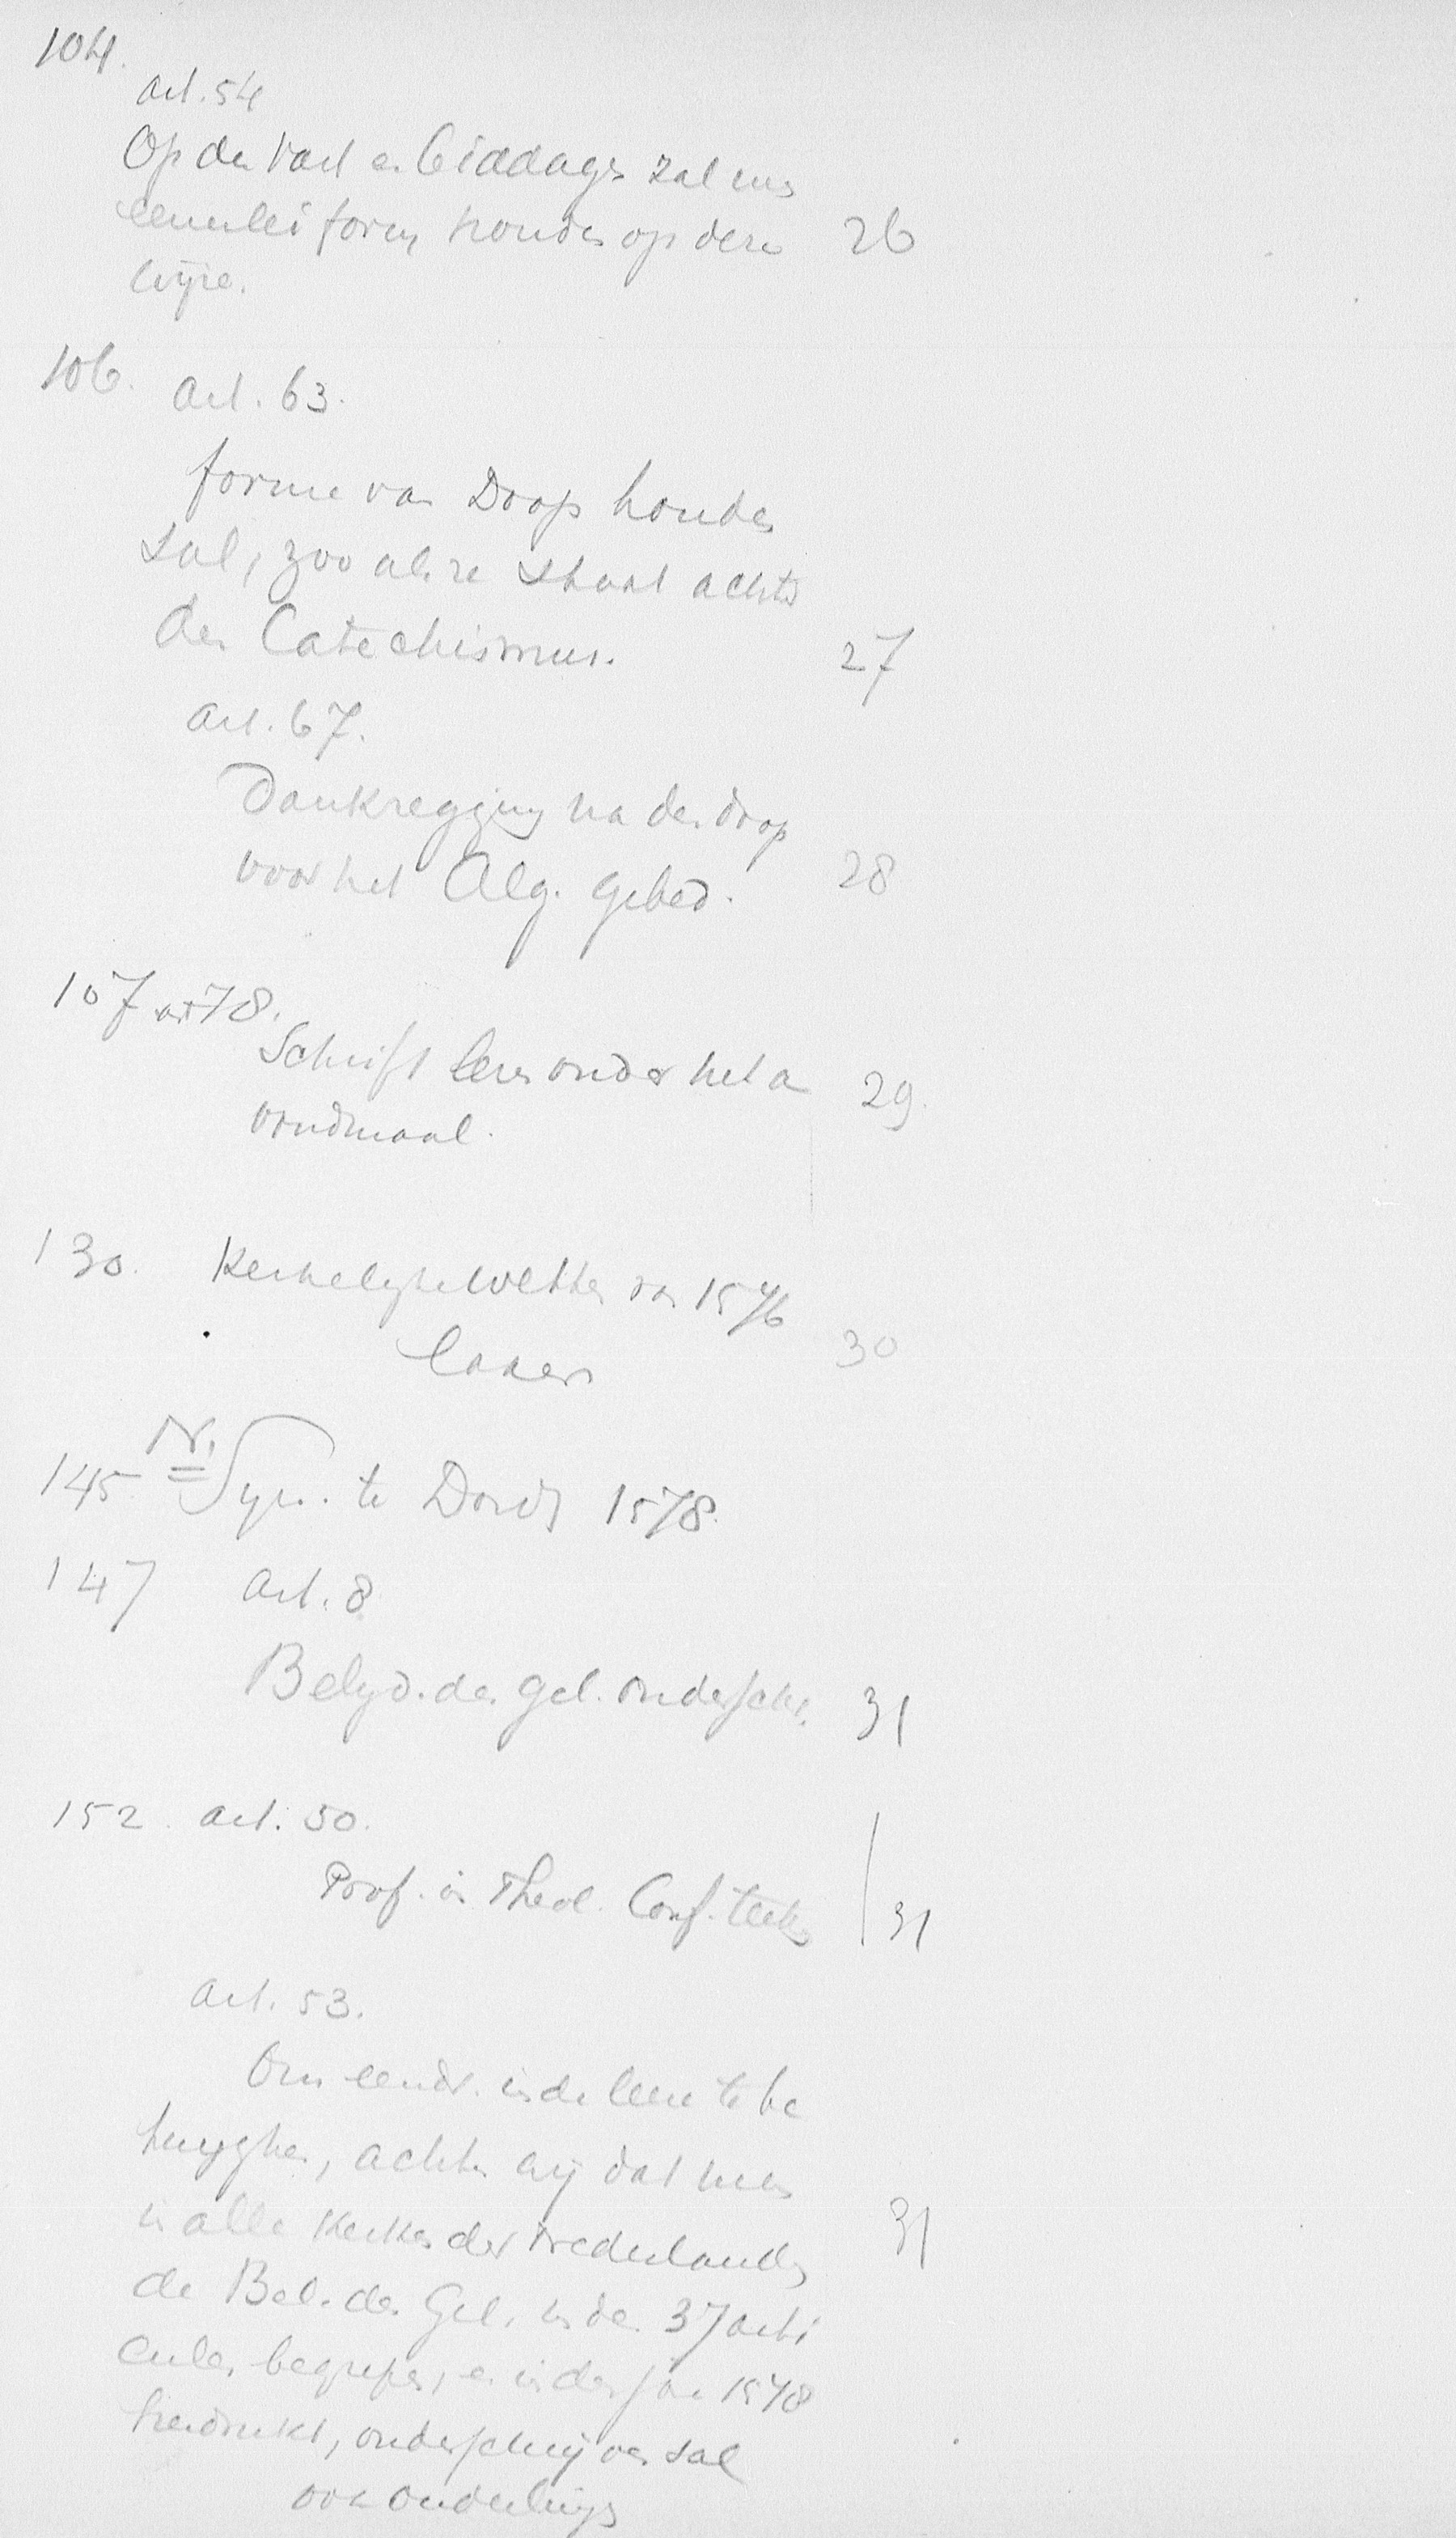 104.
art. 54
Op den vast en biddagen zal men
eenerlei form houden op deze 26
wijze.
106. art. 63.
forme van Doop houden
sal, zoo als ze staat achter
den Catechismus. 27
art. 67.
Dankzegging na den doop
voor het Alg. gebed. 28
107 art 78.
Schrift lezen onder het a 29.
vondmaal.
130. Kerkelijke wetten van 1576
lezen 30
N.
145 Syn. te Dordt 1578.
147 art. 8
Belyd. des gel. onderschr. 31
152. art. 50.
Prof. in Theol. Conf. teeken 31
art. 53.
Om eendr. in de leere te be
tuyghen, achten wij dat men
in alle Kerken der Nederlanden 31
de Bel. des Gel. in de 37 arti
culen begrepen, en in den jare 1578
herdrukt, onderschrijven sal
ook ouderlings